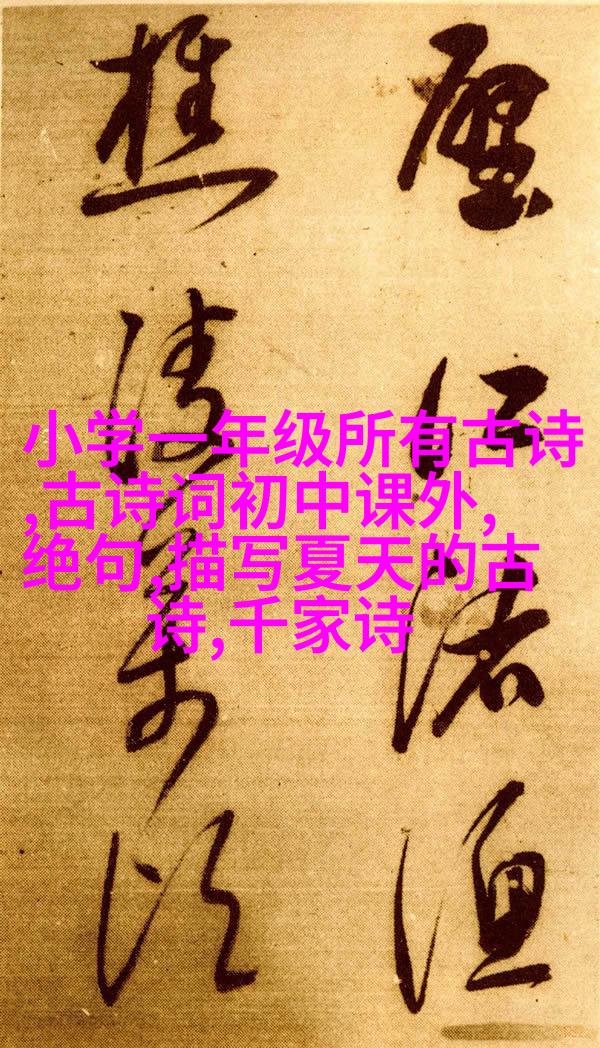 小学一年级所有古诗
,古诗词初中课外,
绝句,描写夏天的古
诗,千家诗
江渚漁
樵凌萬頃